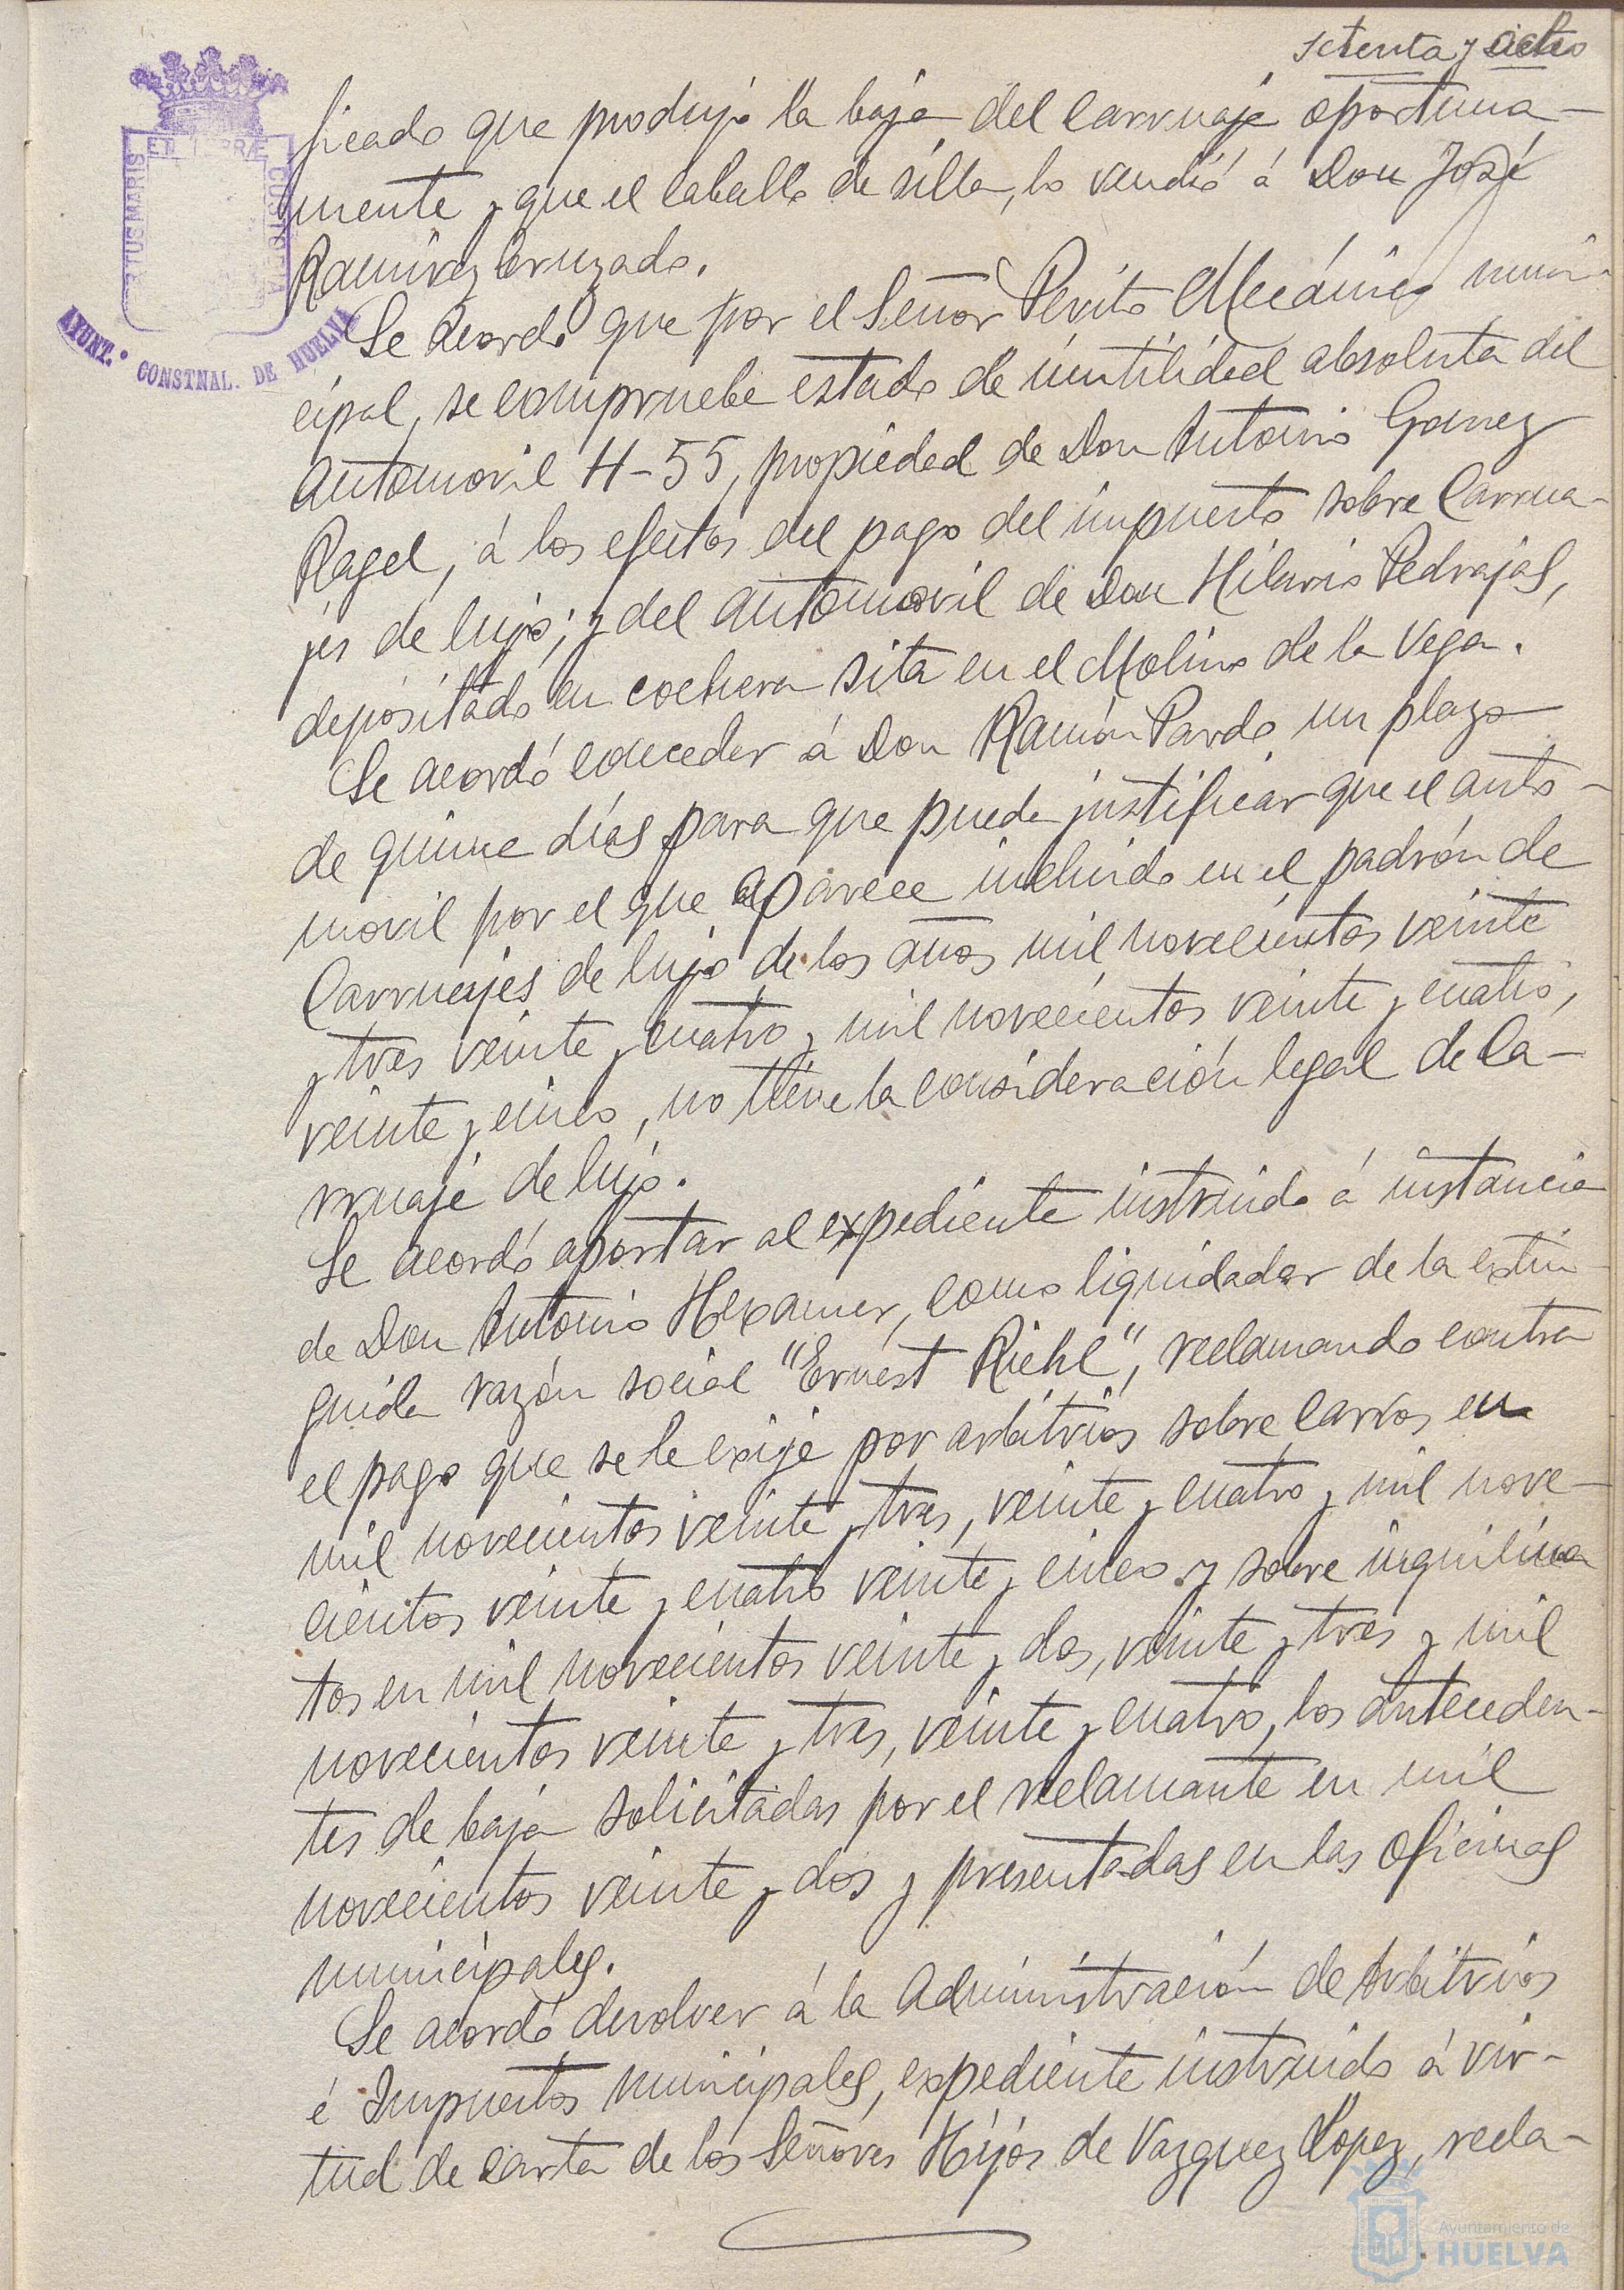 setenta y siete
ficado que produjo la baja del carruaje oportuna-
mente y que el caballo de silla, lo vendió á Don José
Ramírez Cruzado.
Se acordó que por el Señor Perito Mecánico muni-
cipal, se compruebe estado de inutilidad absoluta del
automovil H-55, propiedad de Don Antonio Garrez
Ragel, á los efectos del pago del impuesto sobre Carrua-
jes de lujo; y del automovil de Don Hilario Pedrajas,
depositado en cochera sita en el Molino de la Vega.
Se acordó conceder á Don Ramón Pardo un plazo
de quince días para que pueda justificar que el auto-
movil por el que aparece incluido en el padrón de
Carruajes de lujo de los años mil novecientos veinte
y tres veinte y cuatro y mil novecientos veinte y cuatro,
veinte y cinco, no tiene la consideración legal de Ca-
rruaje de lujo.
Se acordó aportar al expediente instruido á instancia
de Don Antonio Hexamer, como liquidador de la extin-
guida razón social "Ernest Riehl", reclamando contra
el pago que se le exije por arbitrios sobre carros en
mil novecientos veinte y tres, veinte y cuatro y mil nove-
cientos veinte y cuatro veinte y cinco y sobre inquilina
tos en mil novecientos veinte y dos, veinte y tres y mil
novecientos veinte y tres, veinte y cuatro, los anteceden-
tes de baja solicitadas por el reclamante en mil
novecientos veinte y dos y presentadas en las oficinas
municipales.
Se acordó devolver á la Administración de Arbitrios
é Impuestos municipales, expediente instruido á vir-
tud de carta de los Señores Hijos de Vazquez Lopez, recla-
ET TERRÆ CUSTODIA
PORTUS MARIS
AYUNT.º CONSTNAL. DE HUELVA
Ayuntamiento de
HUELVA